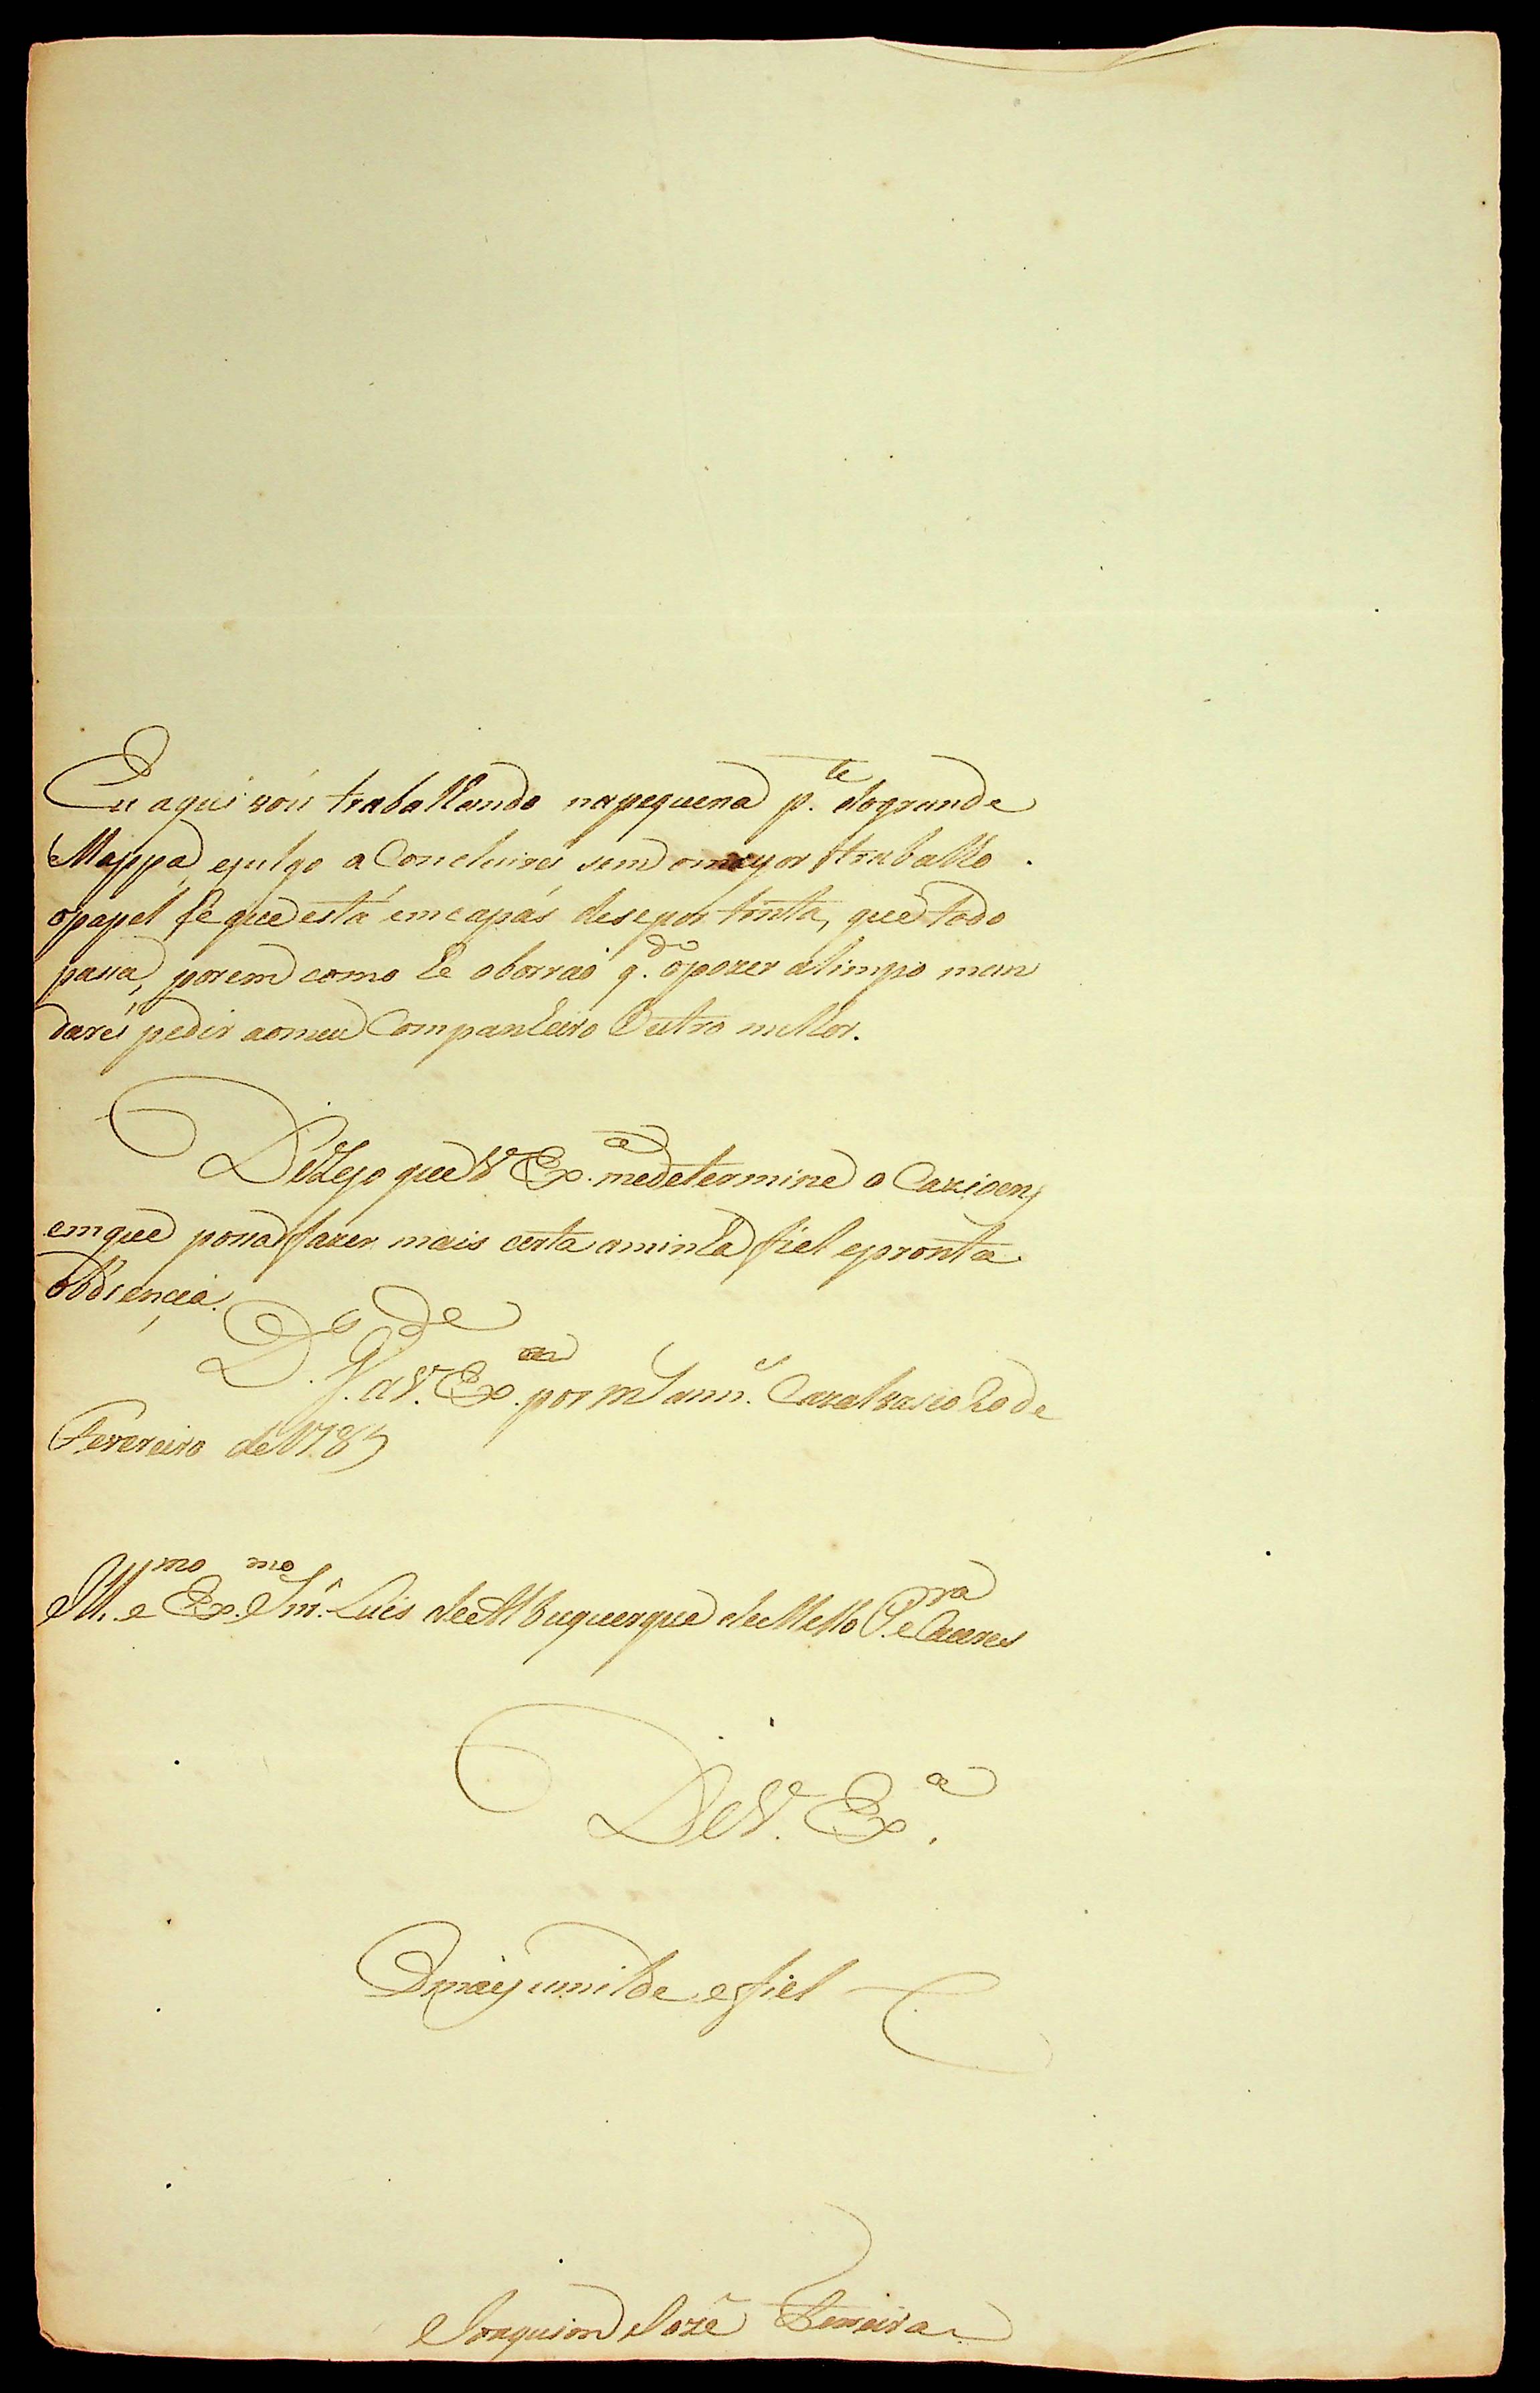 Eu aqui voú trabalhando napequena p.te dogrande
Mappa, ejulgo a Concluirei sem omayor trabalho.
opapel hé que está emcapás desepor tinta, que todo
passa, porem como he oborraó q.do opozer alimpo man
darei pedir aomeu Companheiro Outro milhor.
Dezejo que V. Ex.a medetermine o
emque possa fazer mais certa aminha fiel epronta
Obdiencia.
D.s G.de a V. Ex.a por m. ann. Cazalvasco 20 de
Fevereiro de 178
Ill.mo e Ex.mo Snr. Luis deAlbuquerque deMello P.ra e Caceres
De V. Ex.a
Omay umilde efiel
Joaquim Jozé Ferreira